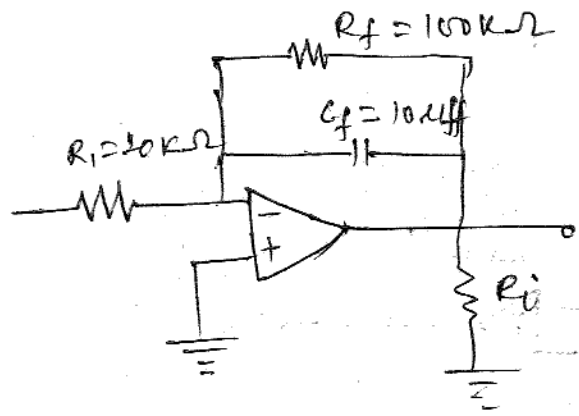 Rf = 100KΩ
Cf = 10µff
R1 = 10KΩ
−
+
Ri